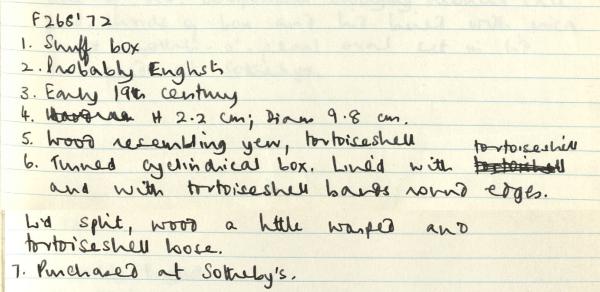 F268'72
1. Snuff box
2. Probably English
3. Early 19th century
4. H 2.2 cm; Diam 9.8 cm.
5. Wood resembling yew, tortoiseshell
6. Turned cylindrical box. Lined with tortoiseshell
and with tortoiseshell bands round edges.
Lid split, wood a little warped and
tortoiseshell loose.
7. Purchased at Sotheby's.